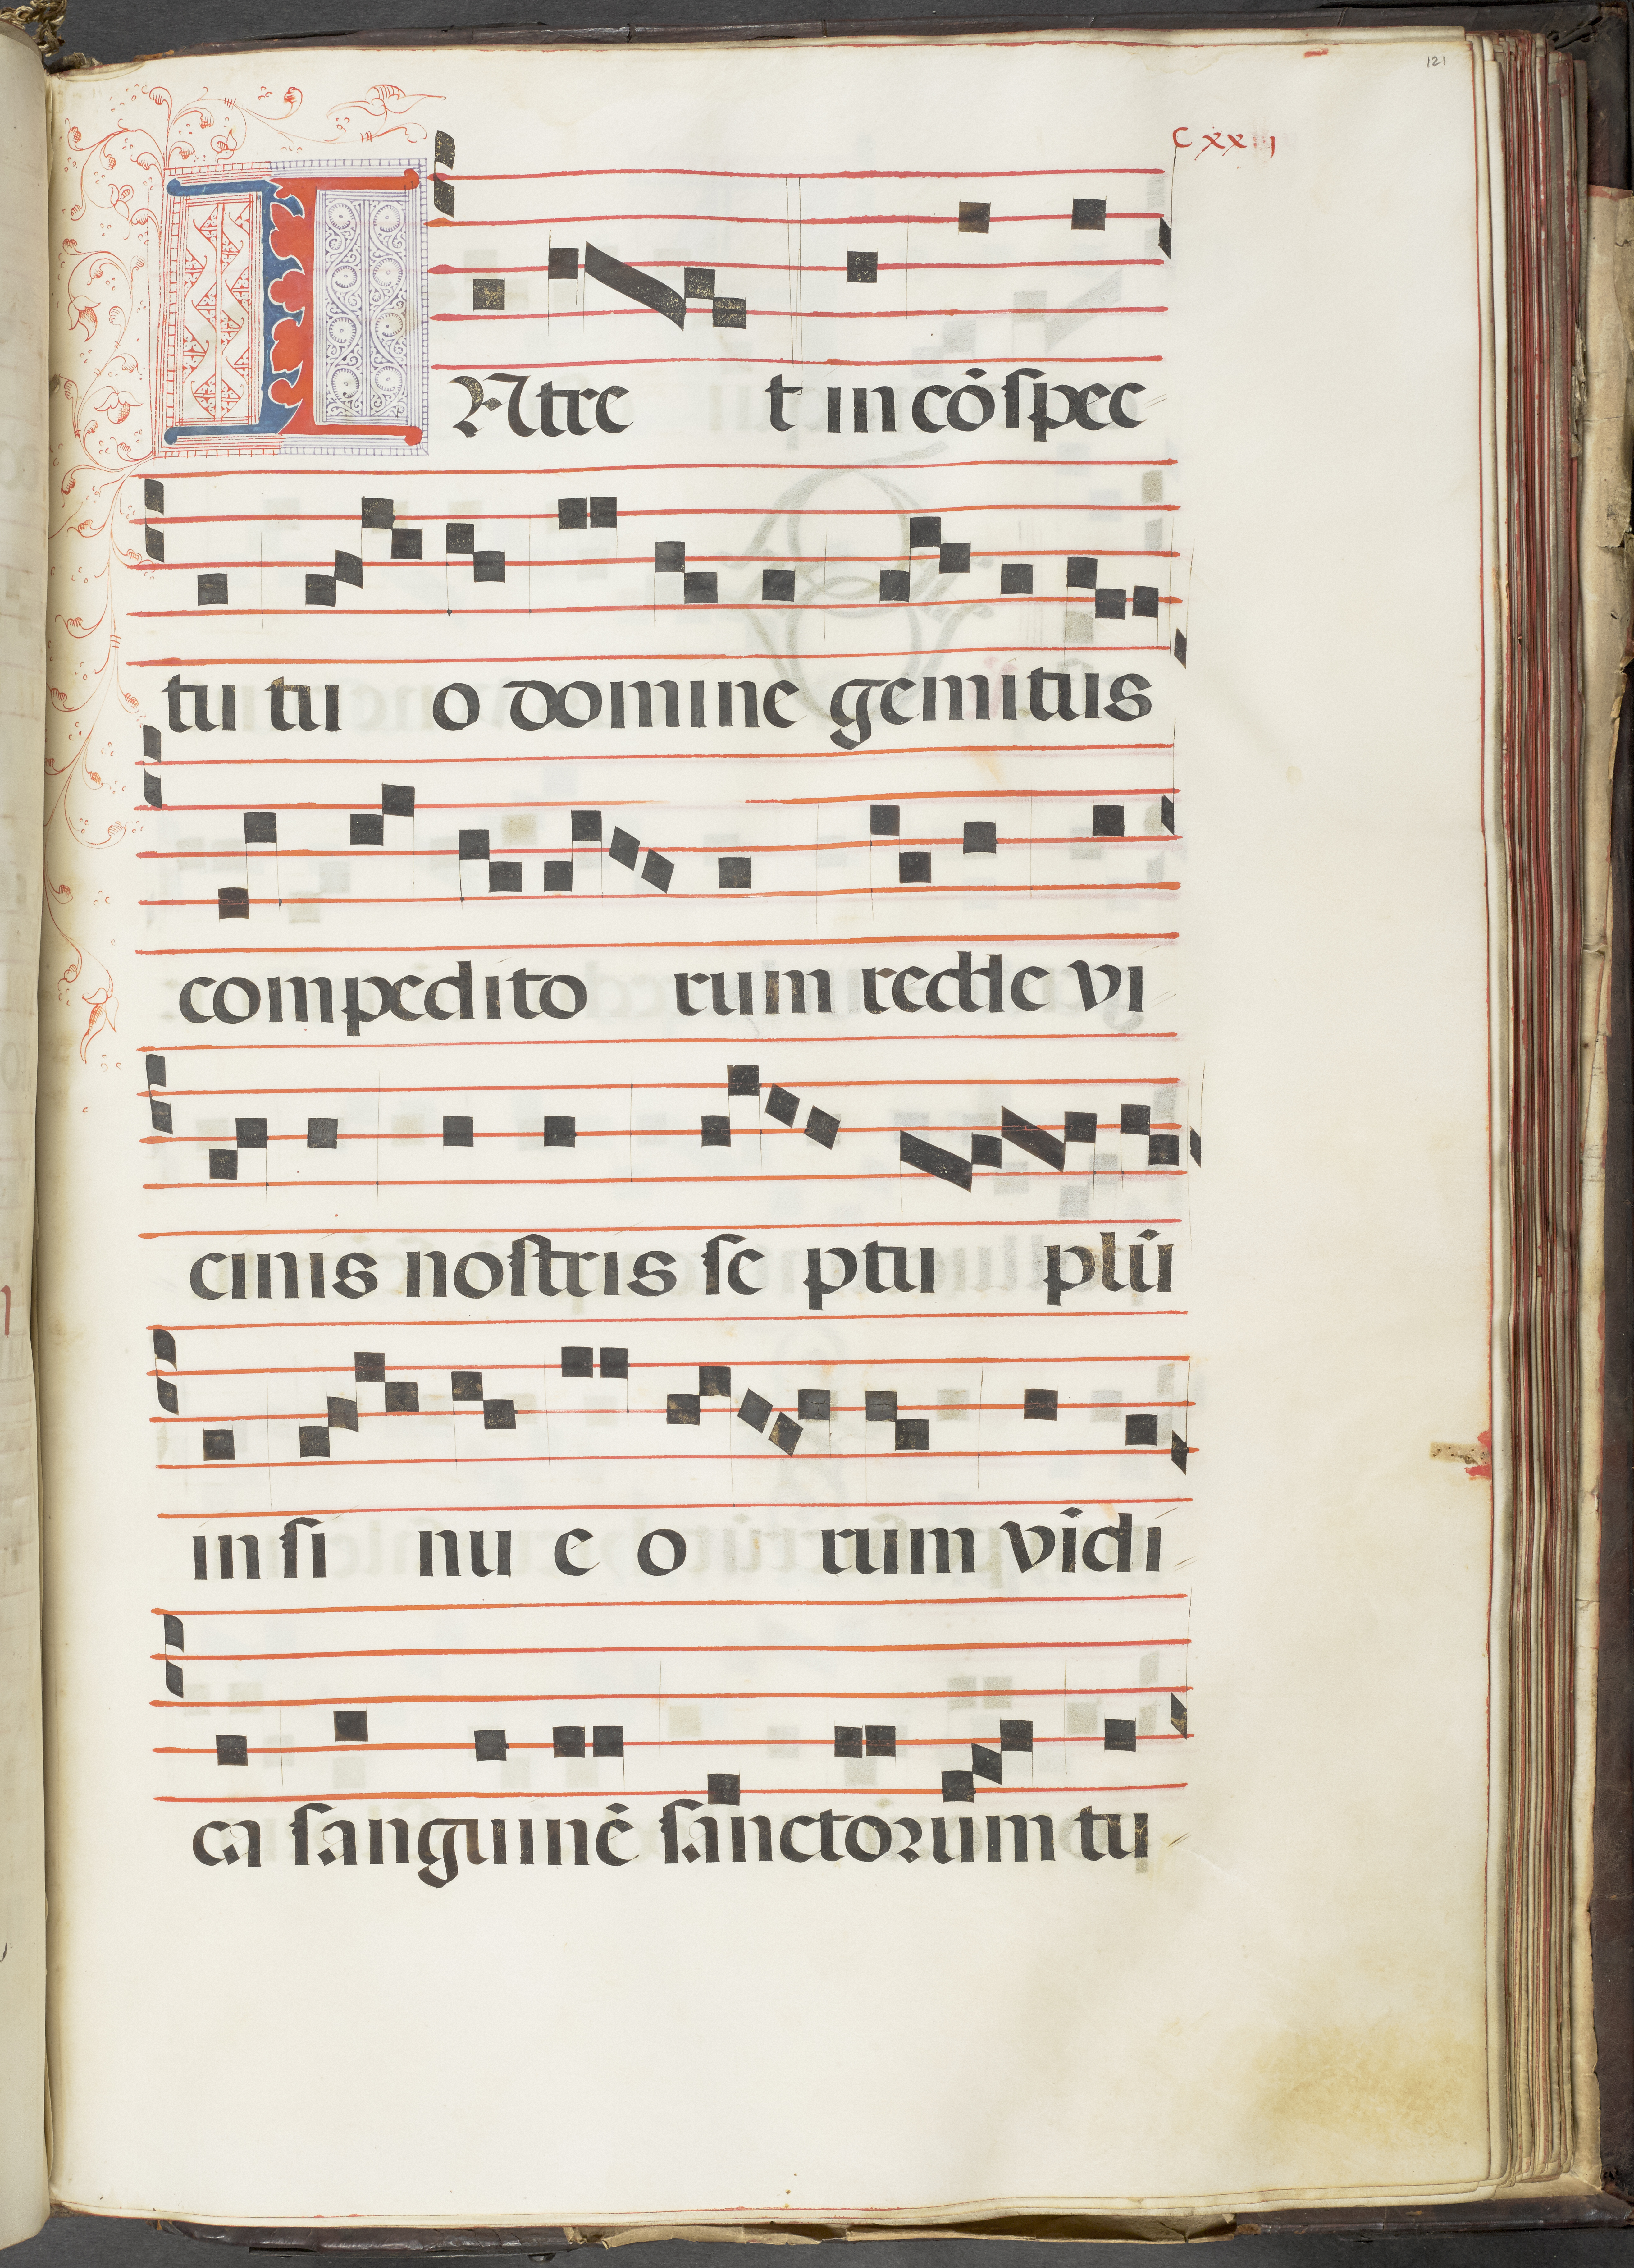 121
C xx
INtre t in cōspec
tu tu o domine gemitus
compedito rum redde vi
cinis nostris se ptu plū
in si nu e o rum vīdi
ca sanguinē sanctorum tu